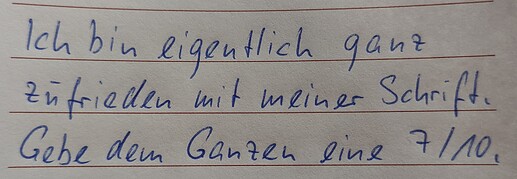 Ich bin eigentlich ganz
zufrieden mit meiner Schrift.
Gebe dem Ganzen eine 7/10.